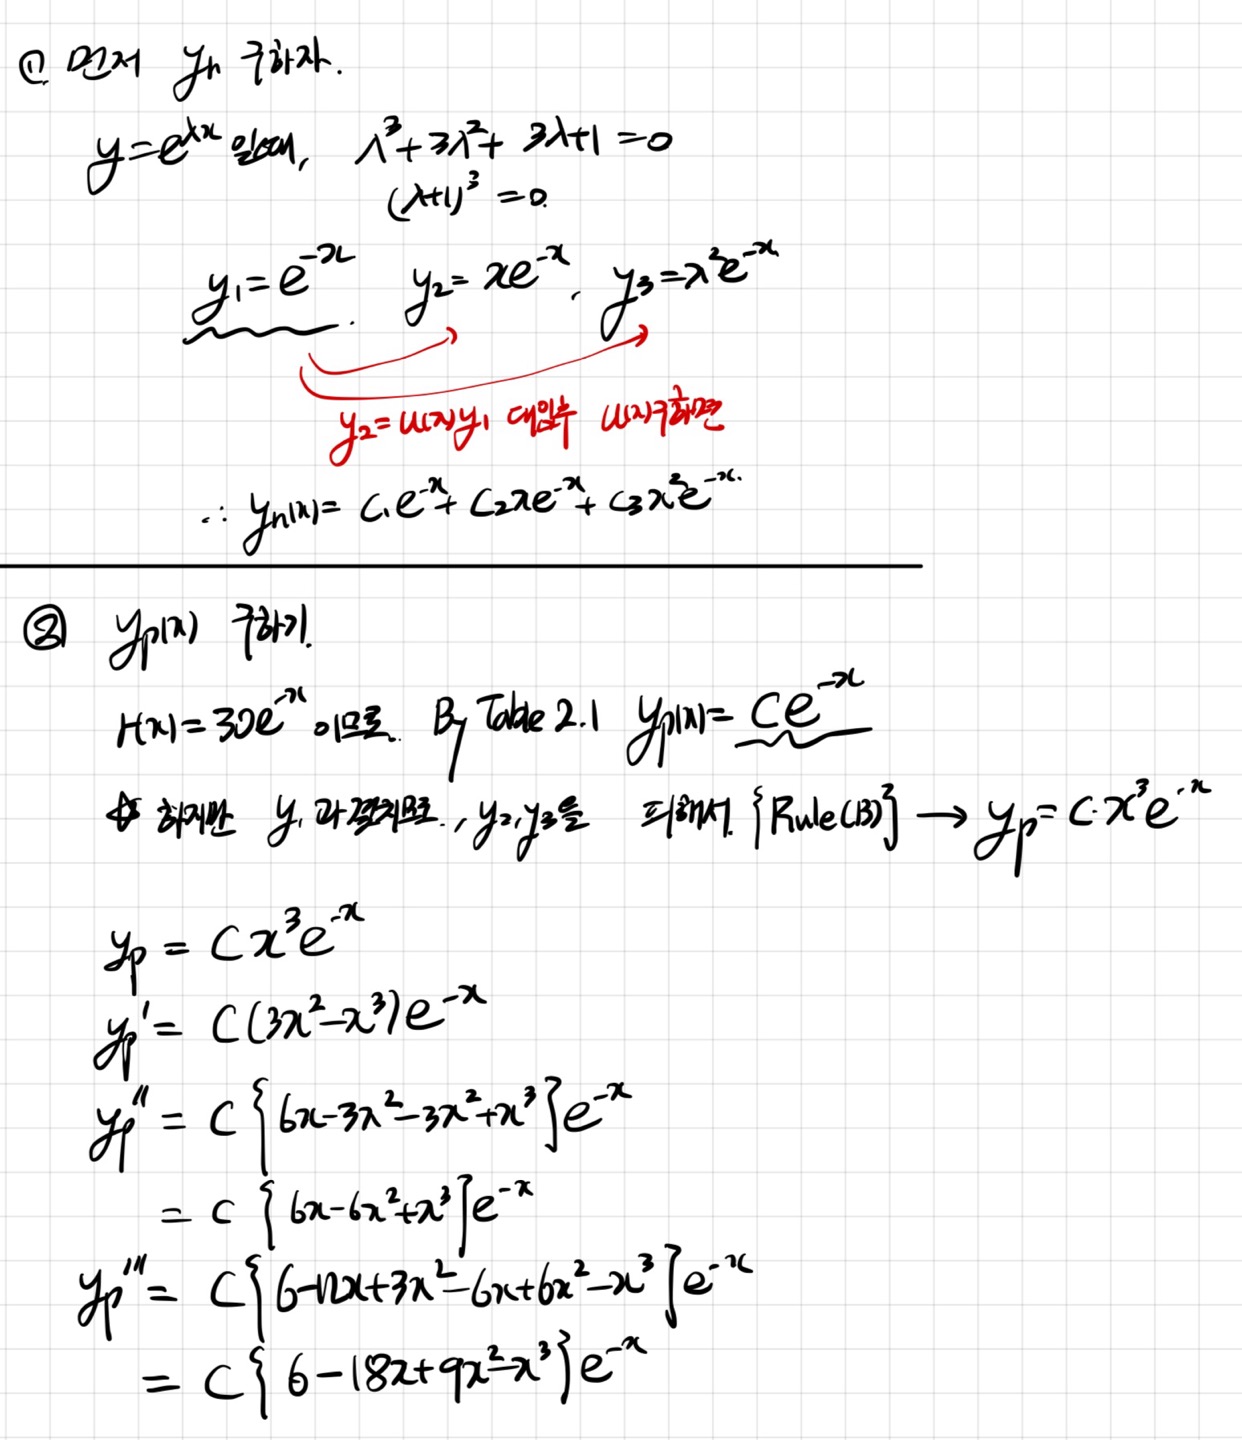 ① 먼저 yₕ 구하자.
y=e^λx 일때, λ³+3λ²+3λ+1=0
(λ+1)³=0.
y₁=e^-x. y₂=xe^-x. y₃=x²e^-x
y₂=u(x)y₁ 대입후 u(x)구하면
∴ yₕ(x)= c₁e^-x+c₂xe^-x+c₃x²e^-x.
② yp(x) 구하기.
r(x)=30e^-x 이므로. By Table 2.1 yp(x)=Ce^-x
☆ 하지만 y₁과 겹치므로., y₂,y₃를 피해서. {Rule(B)} → yp=C·x³e^-x
yp = Cx³e^-x
yp' = C(3x²-x³)e^-x
yp'' = C{6x-3x²-3x²+x³}e^-x
= C{6x-6x²+x³}e^-x
yp''' = C{6-12x+3x²-6x+6x²-x³}e^-x
= C{6-18x+9x²-x³}e^-x